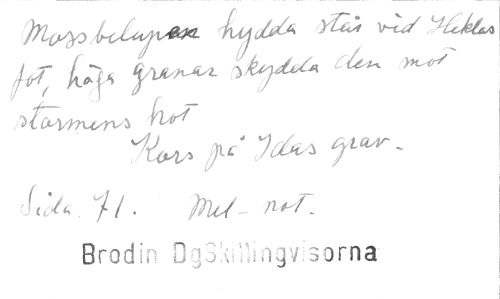 Mossbelupen hydda står vid Heklas
fot, höga granar skydda den mot
stormens hot
Kors på Idas grav.
Sida 71. Mel-not.
Brodin DgSkillingvisorna